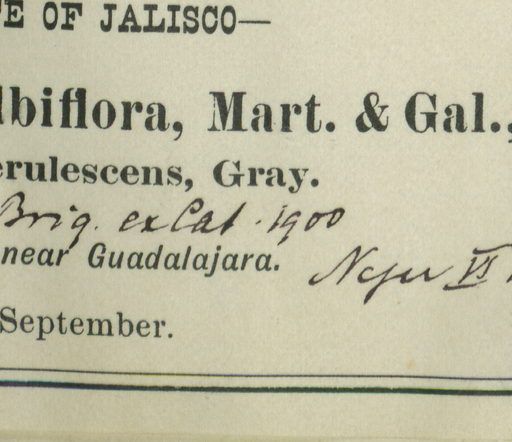 E OF JALISCO—
lbiflora, Mart. & Gal.,
erulescens, Gray.
Briq. ex Cat. 1900
near Guadalajara.
VI
September.